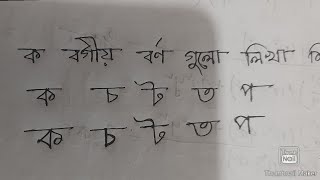 ক বর্গীয় বর্ণ গুলো লিখা
ক চ ট ত প
ক চ ট ত প